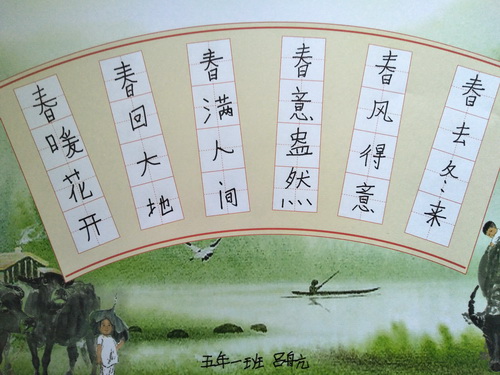 春去冬来
春风得意
春意盎然
春满人间
春回大地
春暖花开
五年一班 吕航